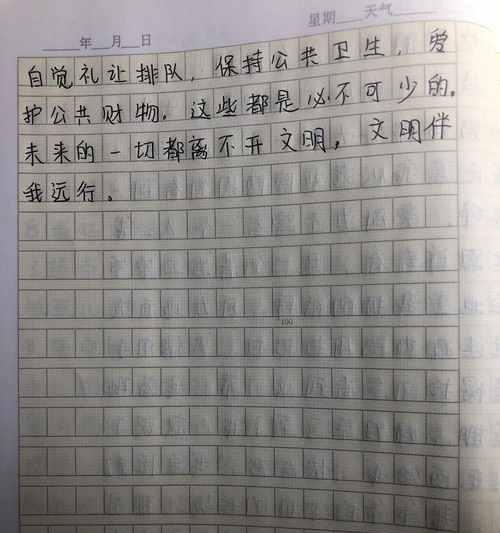 星期____天气____
____年____月____日
自觉礼让排队，保持公共卫生，爱
护公共财物，这些都是必不可少的。
未来的一切都离不开文明，文明伴
我远行。
100